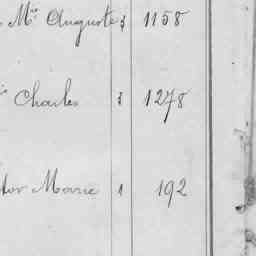 Mie Auguste 3 1158
Charles 3 1278
tor Marie 1 192